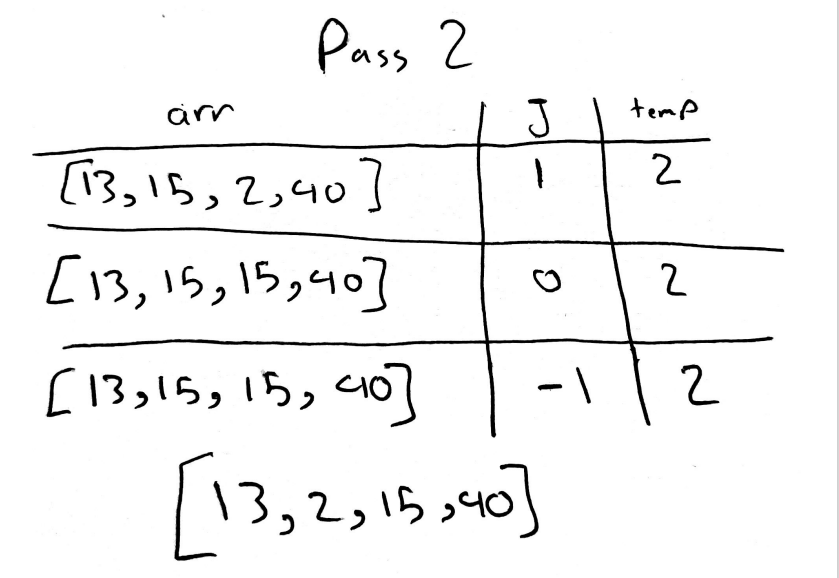 Pass 2
arr J temp
[13, 15, 2, 40] 1 2
[13, 15, 15, 40] 0 2
[13, 15, 15, 40] -1 2
[13, 2, 15, 40]